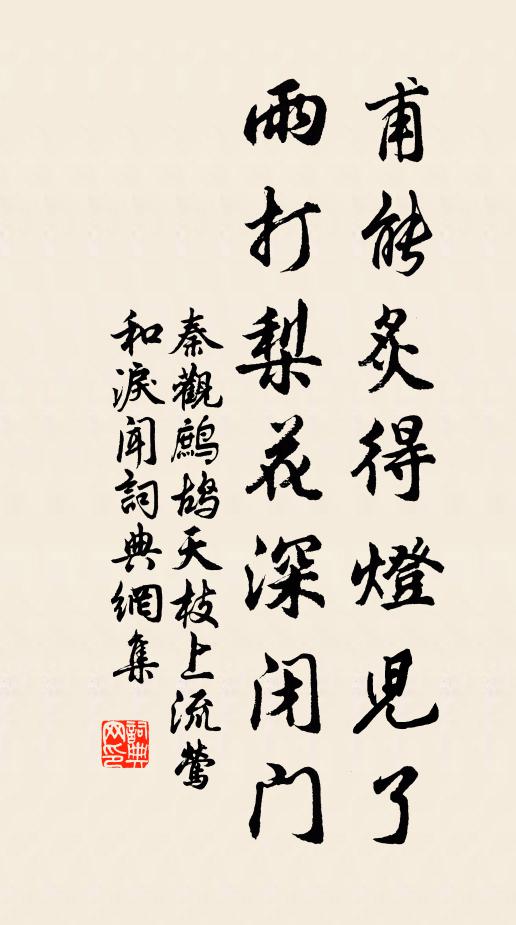 甫能炙得燈兒了
雨打梨花深闭門
秦觀鷓鴣天枝上流鶯
和淚聞詞典網集
詞典
网印